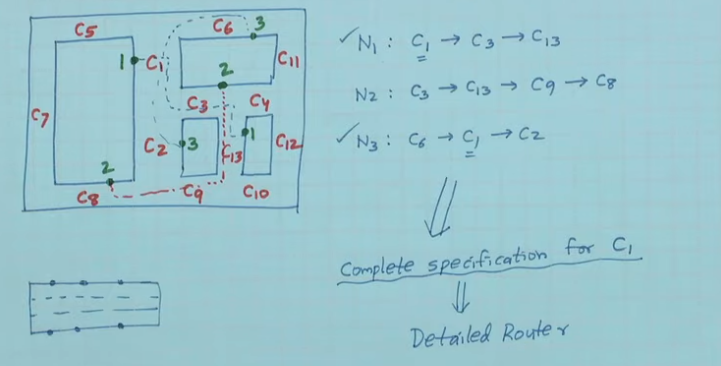 C5
C6
3
1
C1
C11
2
C7
C3
C4
C2
3
C13
1
C12
2
C8
C9
C10
✓N1 : C1 → C3 → C13
N2 : C3 → C13 → C9 → C8
✓N3 : C6 → C1 → C2
Complete specification for C1
Detailed Router